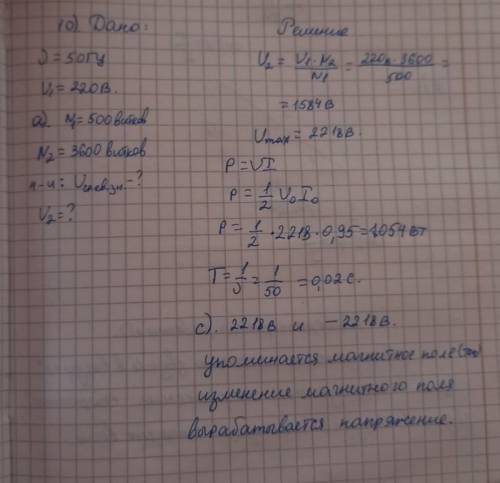 10) Дано:
Решение
ν = 50 Гц
U₁ = 220 В.
a). N₁ = 500 витков
N₂ = 3600 витков
н-и: U -?
U₂ = ?
U₂ = U₁·N₂/N₁ = 220·3600/500 =
= 1584 В
Umax = 2218 В.
P = UI
P = 1/2 U₀ I₀
P = 1/2 · 2218 · 0,95 = 1054 Вт
T = 1/ν = 1/50 = 0,02 с.
c). 2218 В и -2218 В.
упоминается магнитное поле
изменение магнитного поля
вырабатывается напряжение.